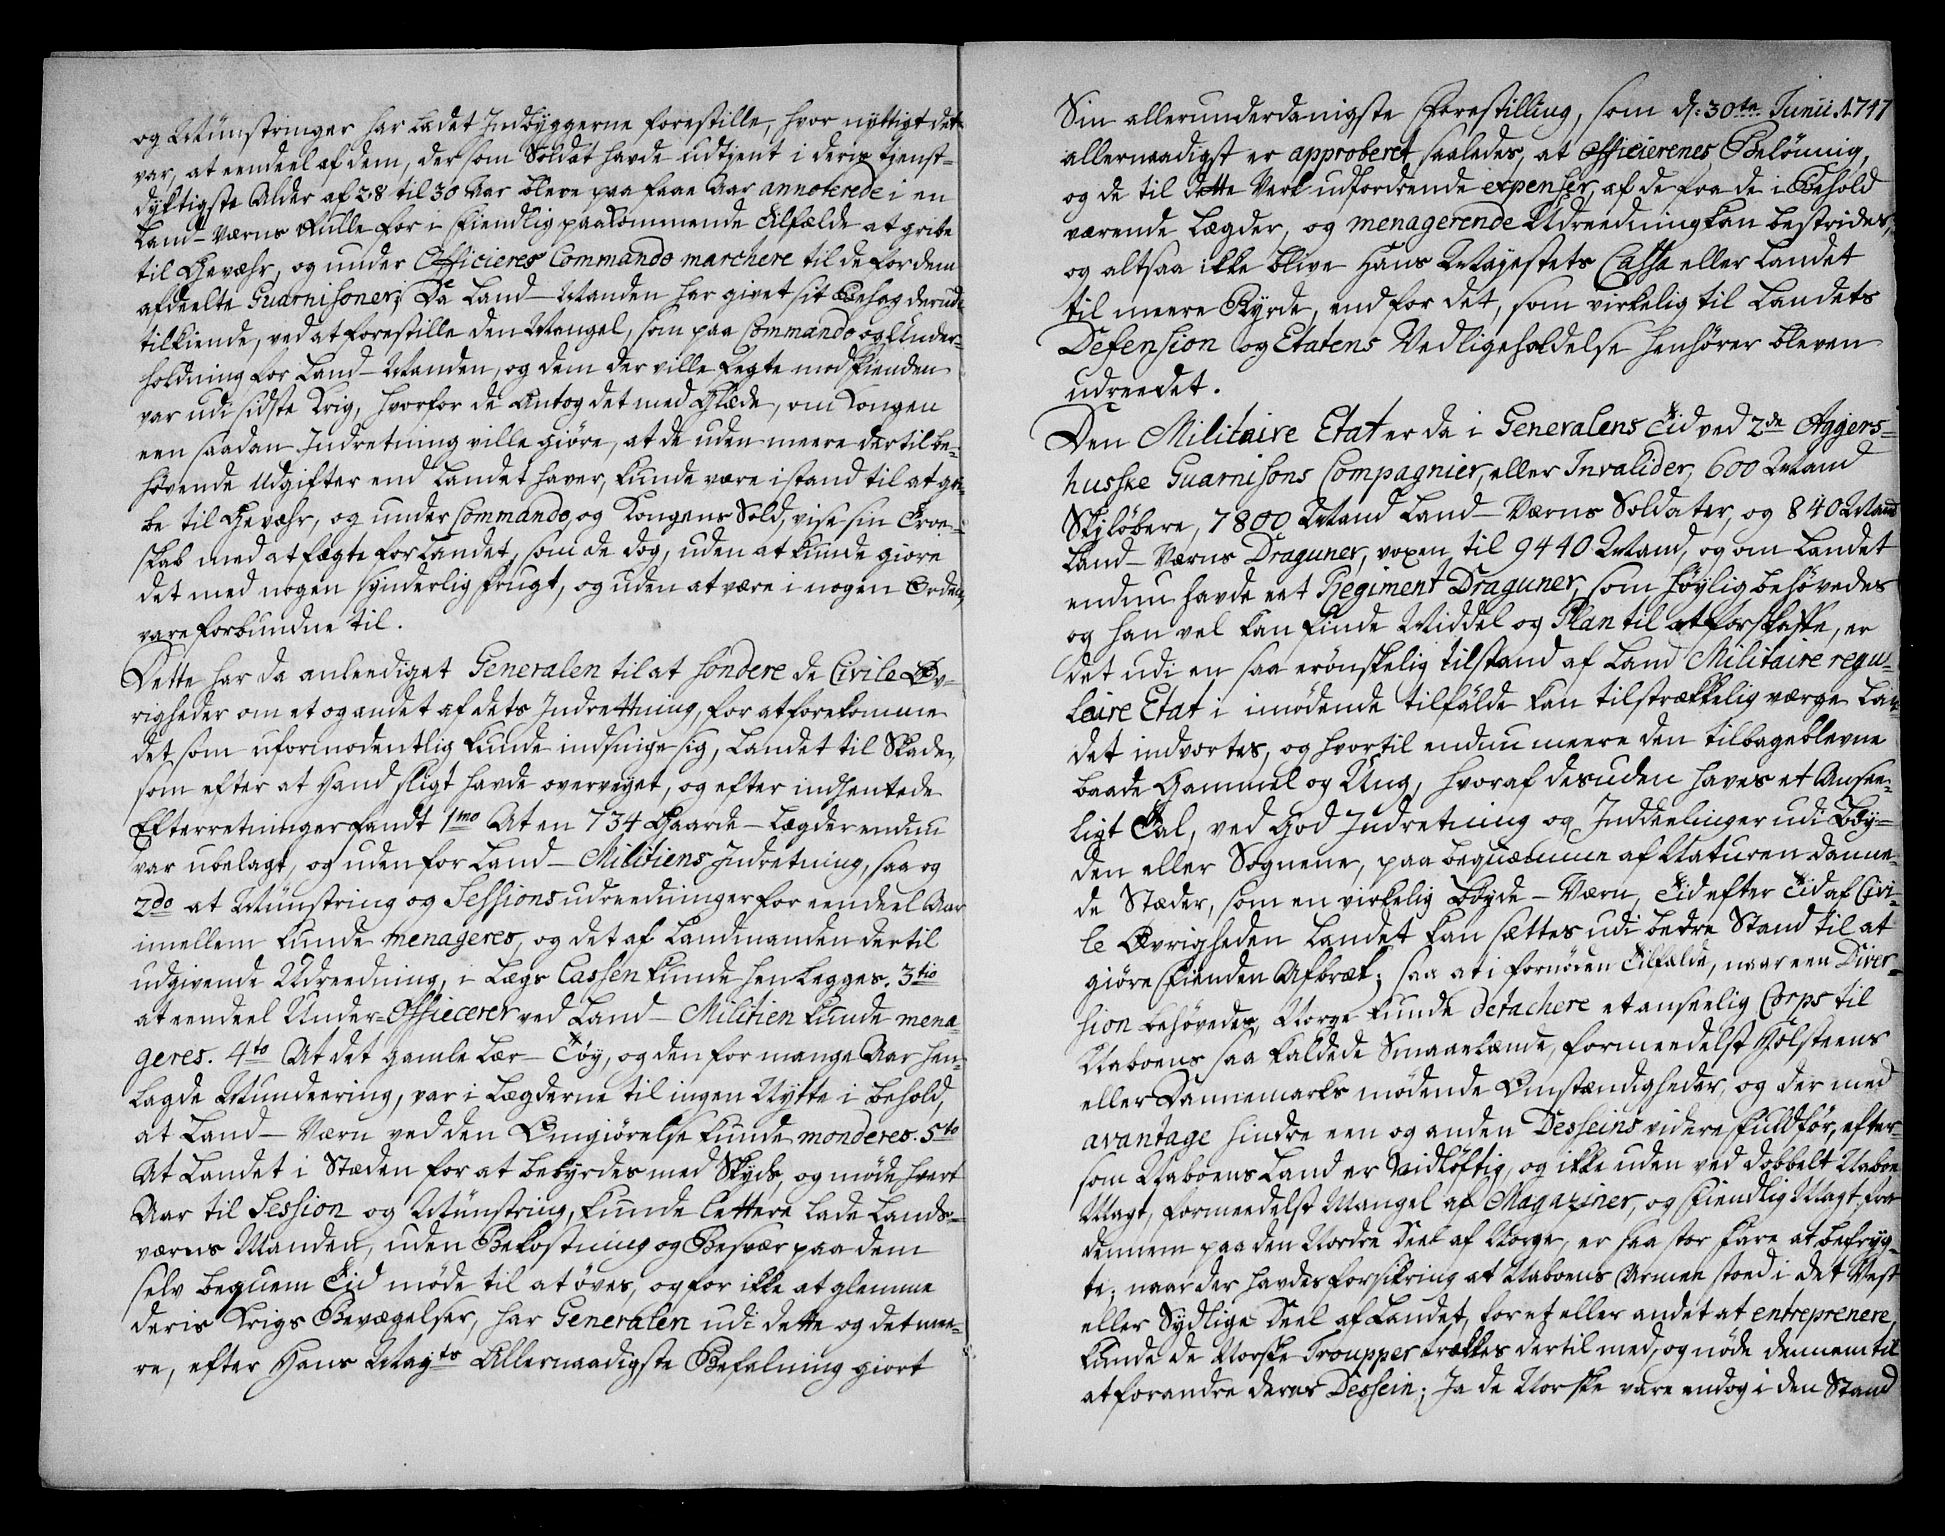 og Münstringer har ladet Indbyggerne forestille, hvor nyttigt det
var, at eendeel af dem, der som Soldat havde udtjent i deris tjenst-
dygtigste Alder af 28 til 30 Aar bleve paa faae Aar annoterede i en
Land-Værns Rulle for i fiendlig paakommende Tilfælde at gribe
til Gevæhr, og under Officieres Commando marchere til de for dem
afdeelte Guarnisoner; Da Land-Manden har givet sit Behag derud-
tilkiende, ved at forestille den Mangel, som paa Commando og Under-
holdning for Land-Manden, og dem der ville fegte mod Fienden
var udi sidste Krig, hvorfor de Antog det med Glæde, om Kongen
een saadan Indretning ville giøre, at de uden meere dertil be-
høvende Udgifter end Landet haver, kunde være istand til at gri-
be til Gevæhr, og under Commando, og Kongens Sold, vise sin Troe-
skab med at fægte for Landet, som de dog, uden at kunde giøre
det med nogen synderlig frugt, og uden at være i nogen Orden,
vare forbundne til.
Dette har da anleediget Generalen til at sondere de Civile Øv-
righeder om et og andet af dets Indrettning, for at forekomme
det som uformodentlig kunde indsnige sig, Landet til Skade,
som efter at Hand sligt havde overveyet, og efter indhentede
Efterretninger fandt 1mo At en 734 Gaarde-Lægder endnu
var ubelagt, og uden for Land-Militiens Indretning, saa og
2do at Münstring og Sessions udreedninger for eendeel Aar
imellem kunde menageres, og det af Landmanden dertil
udgivende Udreedning, i Lægs Cassen kunde hen legges. 3tio
at eendeel Under-Officerer ved Land-Militien kunde mena-
geres. 4to At det gamle Lær-Tøy, og den for mange Aar hen-
lagde Mundeering, var i Lægderne til ingen Nytte i behold,
at Land-Værn ved den Omgiørelse kunde monderes. 5to
At Landet i Stæden for at bebyrdes med Skyds, og møde hvert
Aar til Session og Münstring, kunde lettere lade Lands-
værns Manden, uden Bekostning og Besvær paa dem
selv bequem Tid møde til at øves, og for ikke at glemme
deris Krigs Bevægelser, har Generalen udi dette og det mee-
re, efter Hans Mayts Allernaadigste Befalning giort
Sin allerunderdanigste Forestilling, som d: 30te Junii 1747
allernaadigst er approberet saaledes, at Officierenes Belønnig,
og de til dette Verk udfordrende expenser, af de fra de i Behold
værende Lægder, og menagerende Udreedning kan bestrides,
og altsaa ikke blive Hans Mayestets Cassa eller Landet
til meere Byrde, end for det, som virkelig til Landets
Defension og Etatens Vedligeholdelse henhører bleven
udreedet.
Den Militaire Etat er da i Generalens Tid ved 2de Aggers-
husske Guarnisons Compagnier, eller Invalider, 600 Mand
Skiløbere, 7800 Mand Land-Værns Soldater, og 840 Mand
Land-Værns Draguner, voxen til 9440 Mand, og om Landet
endnu havde eet Regiment Draguner, som høylig behøvedes
og han vel kan finde Middel og Plan til at forskaffe, er
det udi en saa erønskelig tilstand af Land Militaire regu-
laire Etat i imødende tilfælde kan tilstrækkelig værge Lan-
det indvortes, og hvortil endnu meere den tilbageblevne
baade Gammel og Ung, hvoraf desuden haves et Ansee-
ligt Tal, ved God Indretning og Inddeelinger udi Bøy-
den eller Sognene, paa bequemme af Naturen danne-
de Stæder, som en virkelig Bøyde-Værn, Tid efter Tid af Civi-
le Øvrigheden Landet kan sættes udi bedre Stand til at
giøre Fienden Afbræk; saa at i fornøden Tilfælde, naar een Diver-
sion behøvedes, Norge kunde detachere et anseelig Corps til
Naboens saa kaldede Smaaelænde, formeedelst Holsteens
eller Dannemarks mødende Omstændigheder, og der med
avantage hindre een og anden Desseins videre fuldfør, efter-
som Naboens Land er vidløftig, og ikke uden ved dobbelt Naboe
Magt, formeedelst Mangel af Magaziner, og fiendlig Magt, fra
dennem paa den Nordre Deel af Norge, er saa stor fare at befryg-
te; naar der havdes forsikring at Naboens Armee stoed i det Vest
eller Sydlige Deel af Landet, for et eller andet at entreprenere,
kunde de Norske Troupper trækkes dertil med, og nøde dennem til
at forandre deres Dessein; Ja de Norske vare endog i den Stand